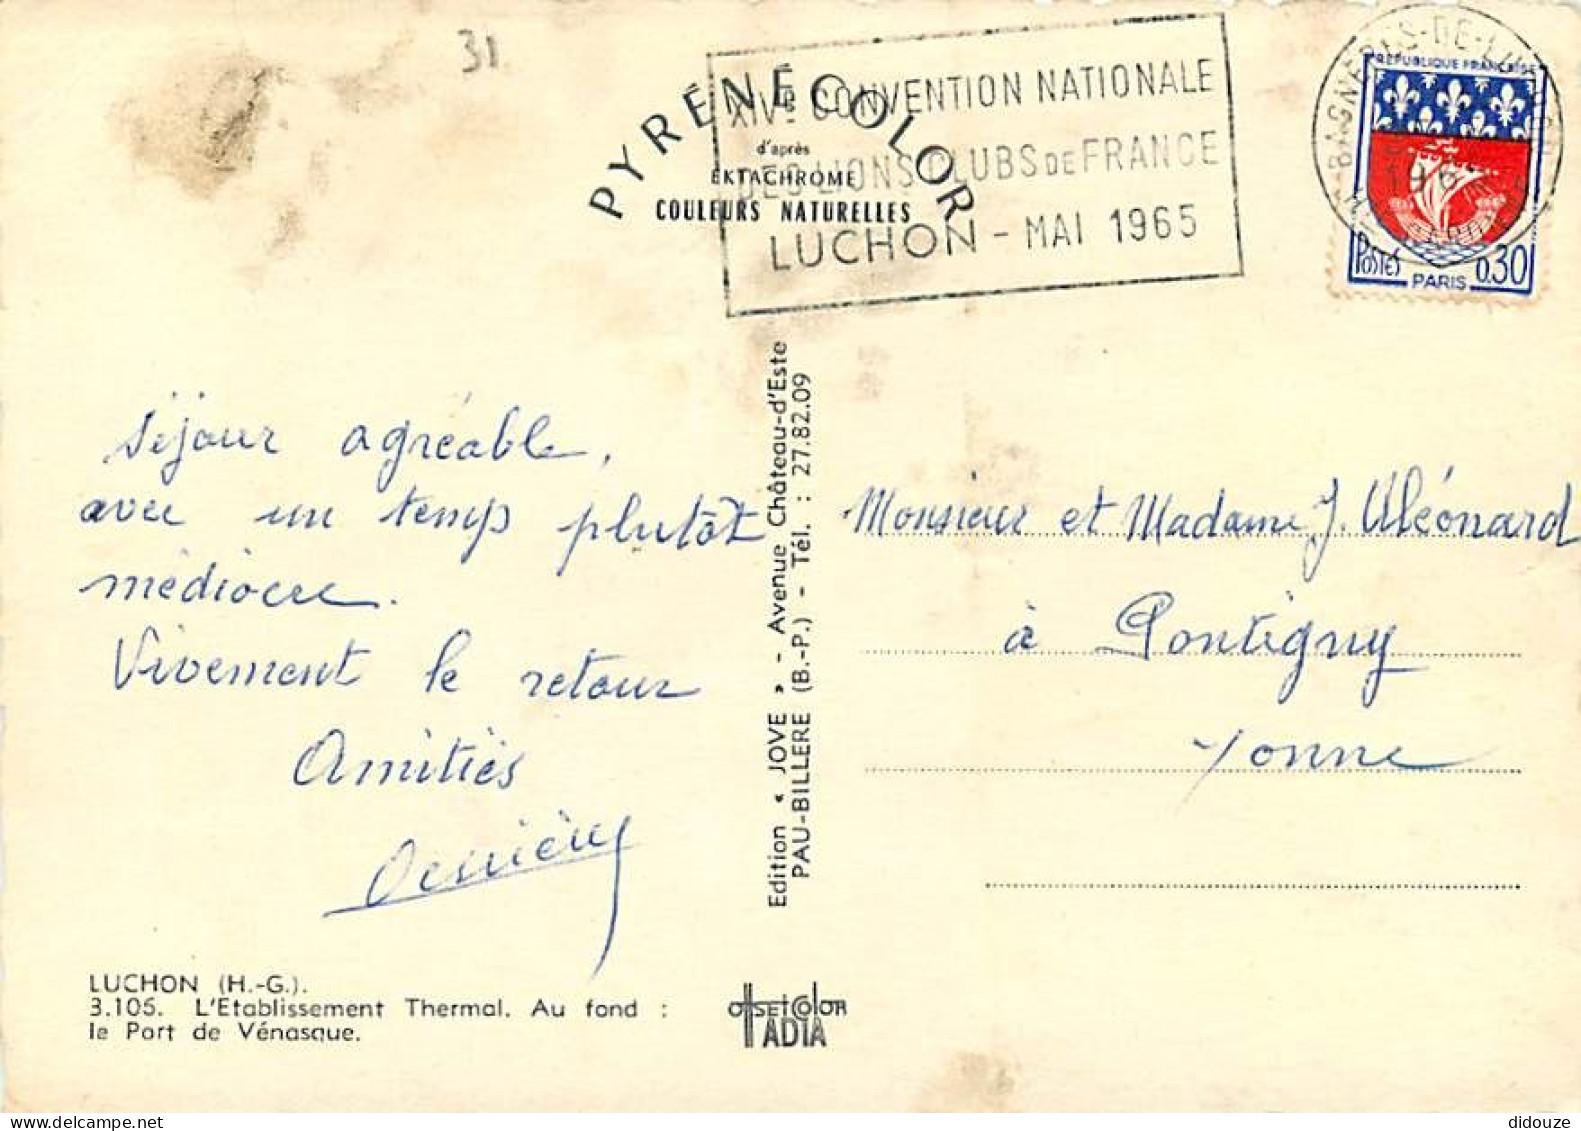 31
PYRÉNÉCOLOR
d'après
EKTACHROME
COULEURS NATURELLES
XIVe CONVENTION NATIONALE
DES LIONS CLUBS DE FRANCE
LUCHON - MAI 1965
BAGNERES-DE-LUCHON
REPUBLIQUE FRANÇAISE
POSTES 0,30
PARIS
Séjour agréable,
avec un temps plutôt
médiocre.
Vivement le retour
Amitiés
Monsieur et Madame J.
à Pontigny
Yonne
Edition « JOVE » - Avenue Château-d'Este
PAU-BILLERE (B.-P.) - Tél. : 27.82.09
LUCHON (H.-G.).
3.105. L'Etablissement Thermal. Au fond :
le Port de Vénasque.
offset color
IADIA
didouze